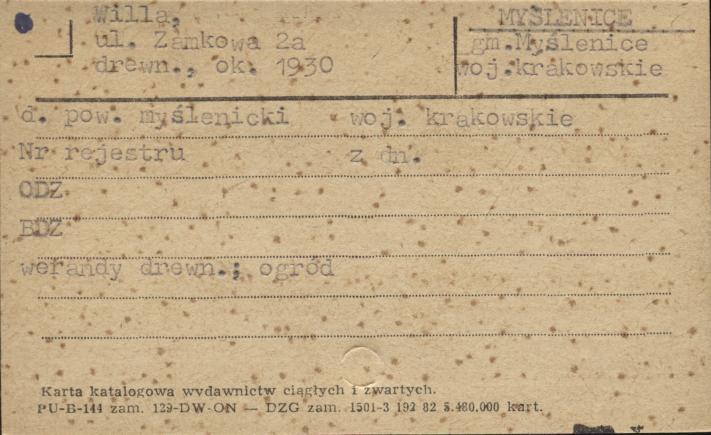 Willa,
ul. Zamkowa 2a
drewn., ok. 1930
MYŚLENICE
gm.Myślenice
woj.krakowskie
d. pow. myślenicki woj. krakowskie
Nr rejestru z dn.
ODZ
BDZ
werandy drewn.; ogród
Karta katalogowa wydawnictw ciągłych i zwartych.
PU-B-144 zam. 129-DW-ON — DZG zam. 1501-3 192 82 5.480.000 kart.